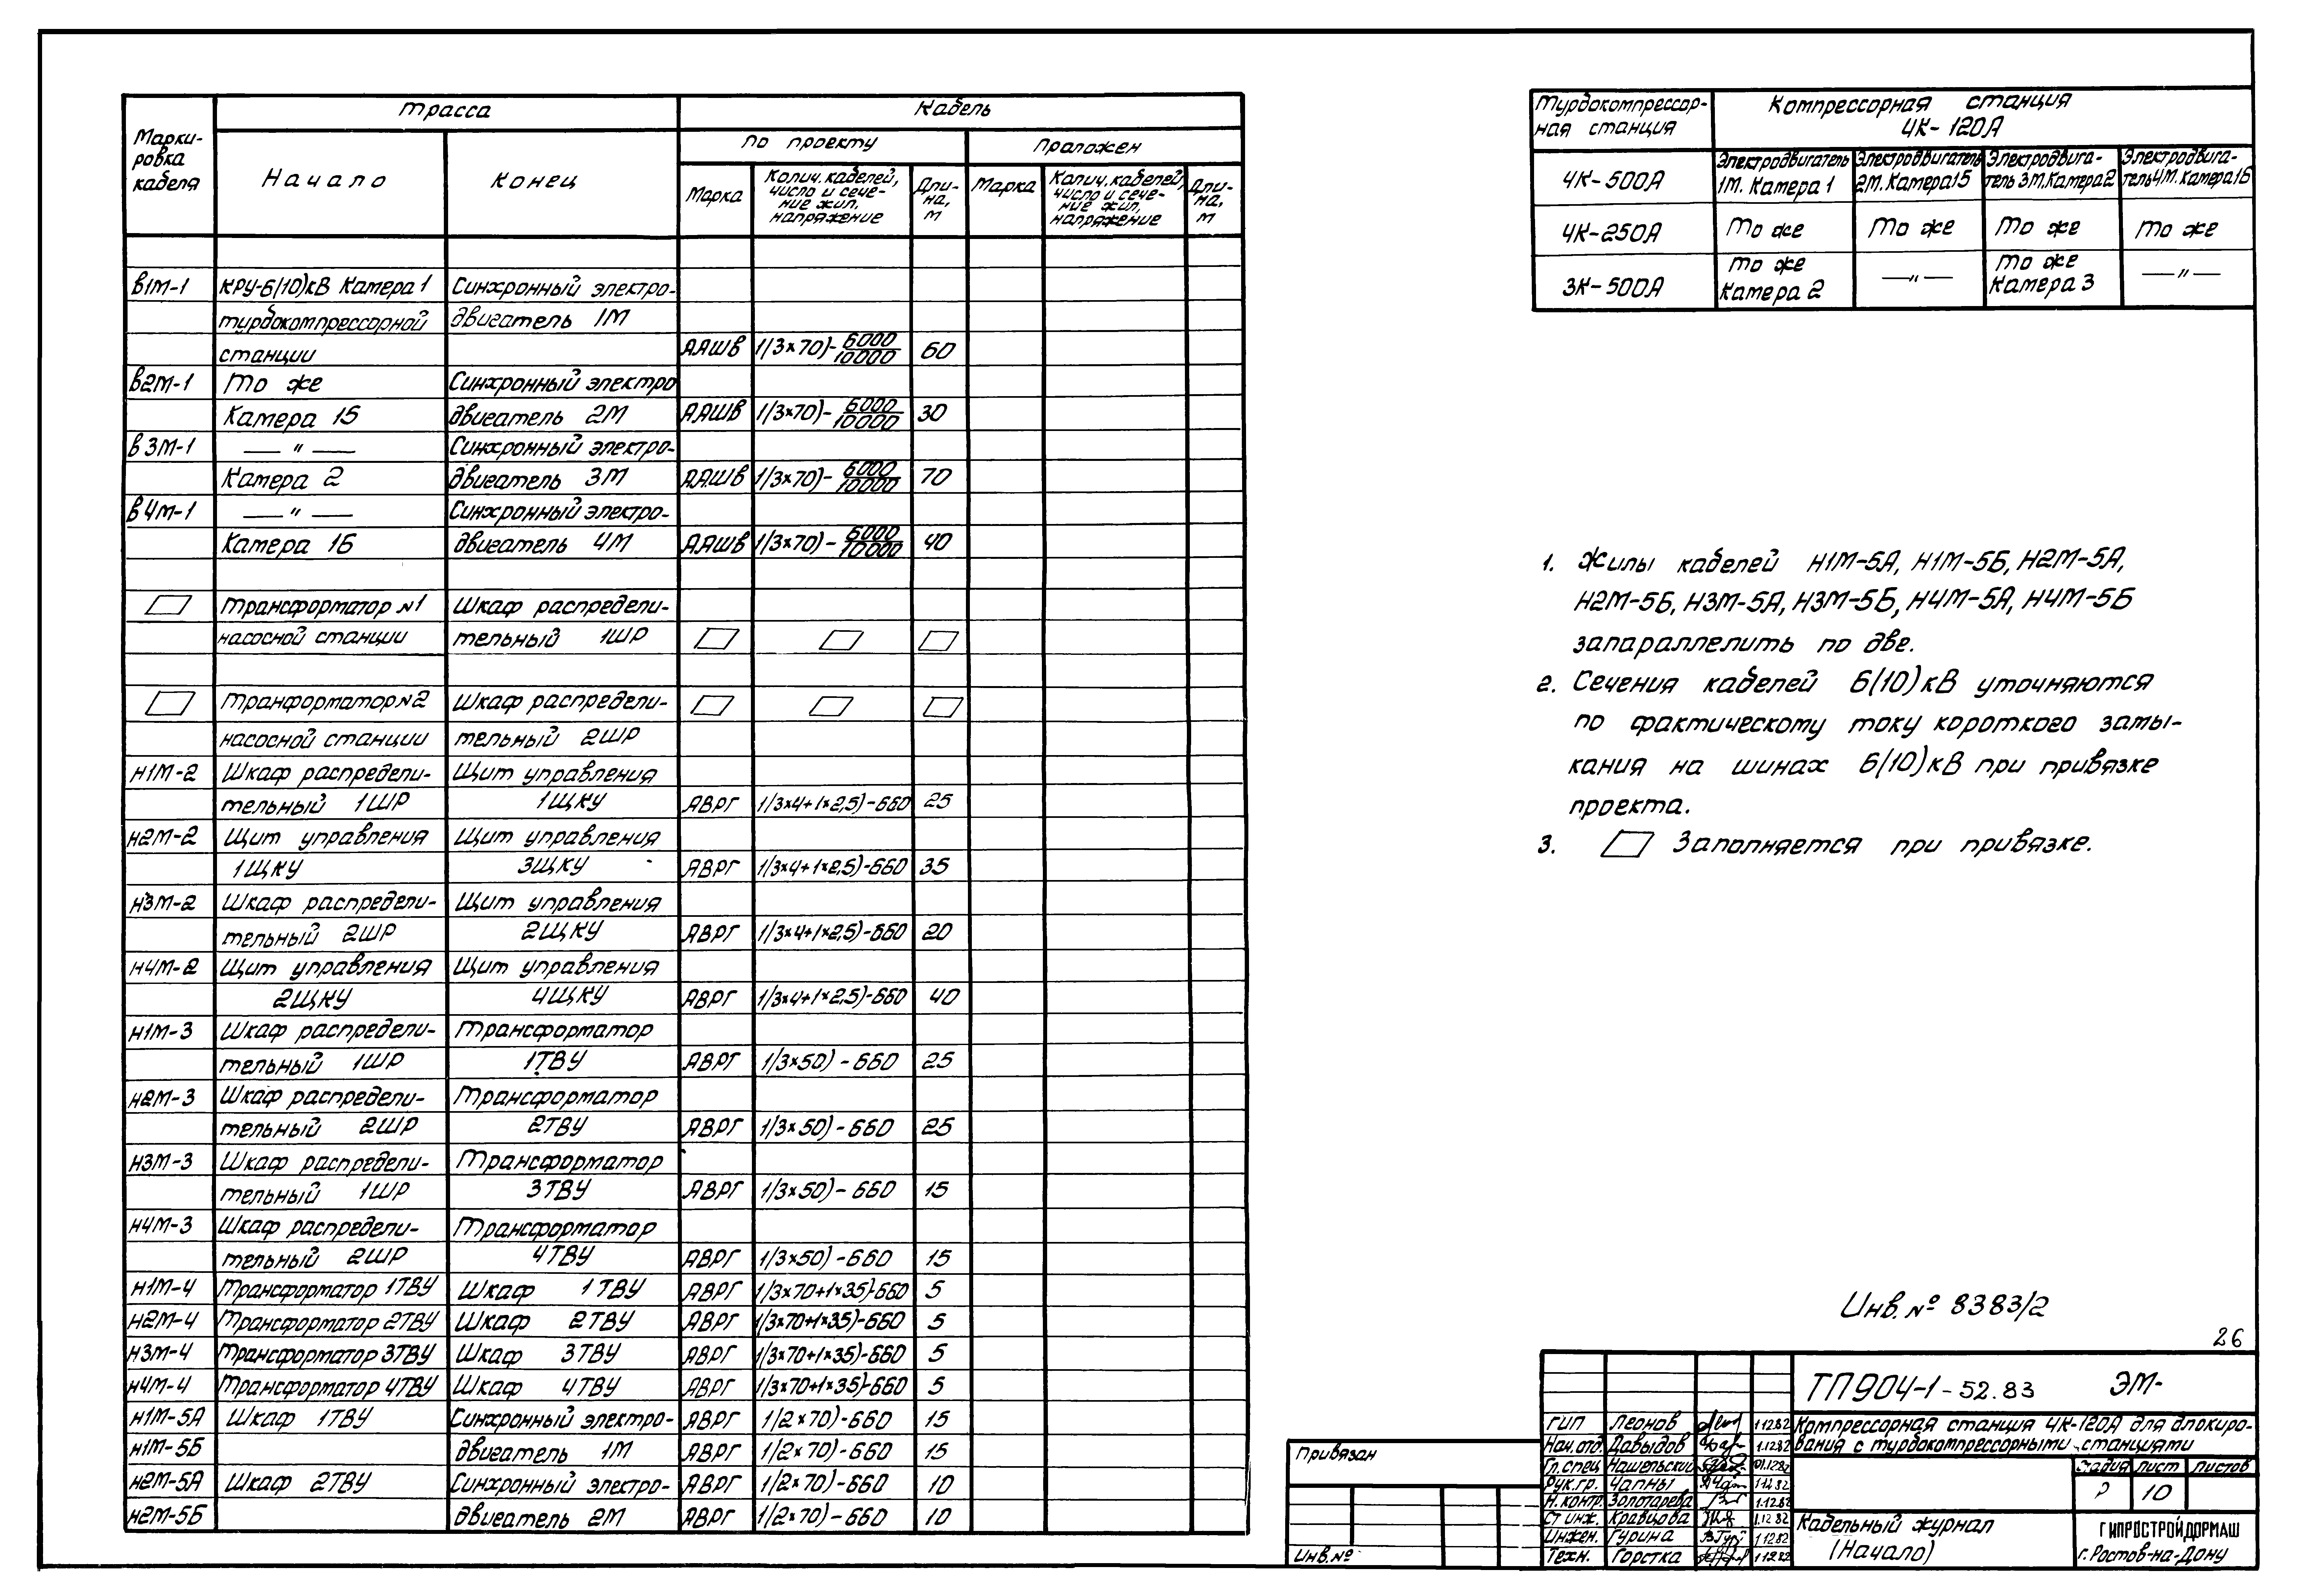 Марки-
ровка
кабеля
Трасса
Кабель
Начало
Конец
По проекту
Проложен
Марка
Колич. кабелей,
число и сече-
ние жил,
напряжение
Дли-
на,
м
Марка
Колич. кабелей,
число и сече-
ние жил,
напряжение
Дли-
на,
м
в1М-1 КРУ-6(10)кВ Камера 1 Синхронный электро-
турбокомпрессорной двигатель 1М
станции ААШВ 1/3×70)-6000/10000 60
в2М-1 То же Синхронный электро
Камера 15 двигатель 2М ААШВ 1/3×70)-6000/10000 30
в3М-1 —"— Синхронный электро-
Камера 2 двигатель 3М ААШВ 1/3×70)-6000/10000 70
в4М-1 —"— Синхронный электро-
Камера 16 двигатель 4М ААШВ 1/3×70)-6000/10000 40
Трансформатор №1 Шкаф распредели-
насосной станции тельный 1ШР
Транформатор №2 Шкаф распредели-
насосной станции тельный 2ШР
Н1М-2 Шкаф распредели- Щит управления
тельный 1ШР 1ЩКУ АВРГ 1/3×4+1×2,5)-660 25
Н2М-2 Щит управления Щит управления
1ЩКУ 3ЩКУ АВРГ 1/3×4+1×2,5)-660 35
Н3М-2 Шкаф распредели- Щит управления
тельный 2ШР 2ЩКУ АВРГ 1/3×4+1×2,5)-660 20
Н4М-2 Щит управления Щит управления
2ЩКУ 4ЩКУ АВРГ 1/3×4+1×2,5)-660 40
Н1М-3 Шкаф распредели- Трансформатор
тельный 1ШР 1ТВУ АВРГ 1/3×50)-660 25
Н2М-3 Шкаф распредели- Трансформатор
тельный 2ШР 2ТВУ АВРГ 1/3×50)-660 25
Н3М-3 Шкаф распредели- Трансформатор
тельный 1ШР 3ТВУ АВРГ 1/3×50)-660 15
Н4М-3 Шкаф распредели- Трансформатор
тельный 2ШР 4ТВУ АВРГ 1/3×50)-660 15
Н1М-4 Трансформатор 1ТВУ Шкаф 1ТВУ АВРГ 1/3×70+1×35)-660 5
Н2М-4 Трансформатор 2ТВУ Шкаф 2ТВУ АВРГ 1/3×70+1×35)-660 5
Н3М-4 Трансформатор 3ТВУ Шкаф 3ТВУ АВРГ 1/3×70+1×35)-660 5
Н4М-4 Трансформатор 4ТВУ Шкаф 4ТВУ АВРГ 1/3×70+1×35)-660 5
Н1М-5А Шкаф 1ТВУ Синхронный электро- АВРГ 1/2×70)-660 15
Н1М-5Б двигатель 1М АВРГ 1/2×70)-660 15
Н2М-5А Шкаф 2ТВУ Синхронный электро- АВРГ 1/2×70)-660 10
Н2М-5Б двигатель 2М АВРГ 1/2×70)-660 10
Турбокомпрессор-
ная станция
Компрессорная станция
4К-120А
4К-500А
Электродвигатель
1М. Камера 1
Электродвигатель
2М. Камера 15
Электродвига-
тель 3М. Камера 2
Электродвига-
тель 4М. Камера 16
4К-250А То же То же То же То же
3К-500А
То же
Камера 2
—"—
То же
Камера 3
—"—
1. Жилы кабелей Н1М-5А, Н1М-5Б, Н2М-5А,
Н2М-5Б, Н3М-5А, Н3М-5Б, Н4М-5А, Н4М-5Б
запараллелить по две.
2. Сечения кабелей 6(10)кВ уточняются
по фактическому току короткого замы-
кания на шинах 6(10)кВ при привязке
проекта.
3. Заполняется при привязке.
Инв. № 8383/2
26
ТП904-1-52.83 ЭМ-
ГИП Леонов 1.12.82
Нач.отд Давыдов 1.12.82
Гл.спец Нашельский 01.12.82
Рук.гр. Чапны 1.12.82
Н.контр. Золотарева 1.12.82
Ст инж. Кравцова 1.12.82
Инжен. Гурина 1.12.82
Техн. Горстка 1.12.82
Компрессорная станция 4К-120А для блокиро-
вания с турбокомпрессорными станциями
Стадия Лист Листов
Р 10
Кабельный журнал
(Начало)
ГИПРОСТРОЙДОРМАШ
г. Ростов-на-Дону
Привязан
Инв.№